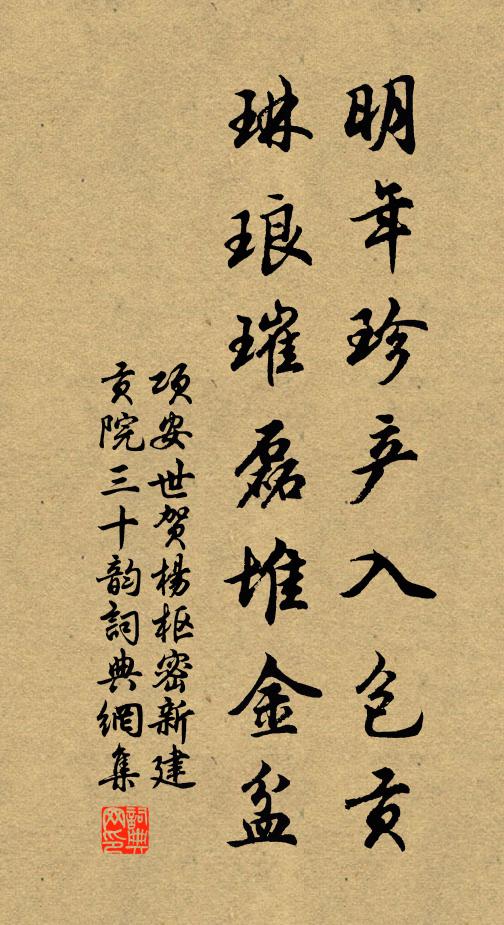 明年珍产入包贡
琳琅璀磊堆金盆
项安世贺杨枢密新建
贡院三十韵詞典網集
詞典网印